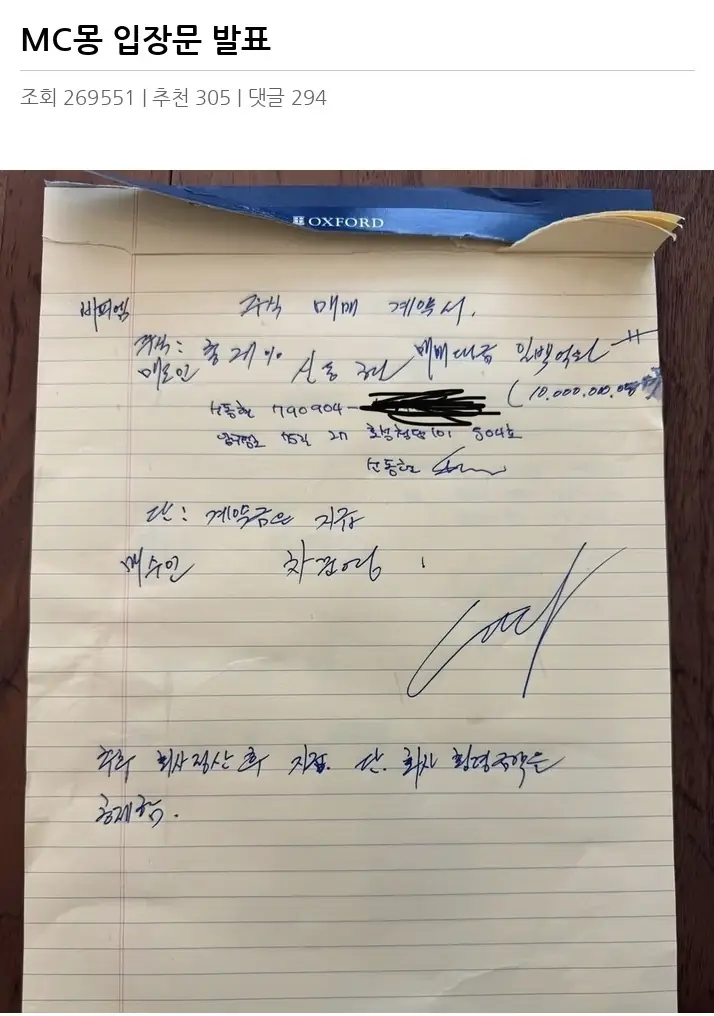 MC몽 입장문 발표
조회 269551 | 추천 305 | 댓글 294
OXFORD
비피엠 주식 매매 계약서.
주식: 총 매매대금 일백억원
매도인 신동현
(10.000.000.000
신동현 790904-
504호
신동현
단: 계약금은 지급
매수인 차가영
추후 회사정산 후 지급. 단. 회사 횡령금액은
공제함.